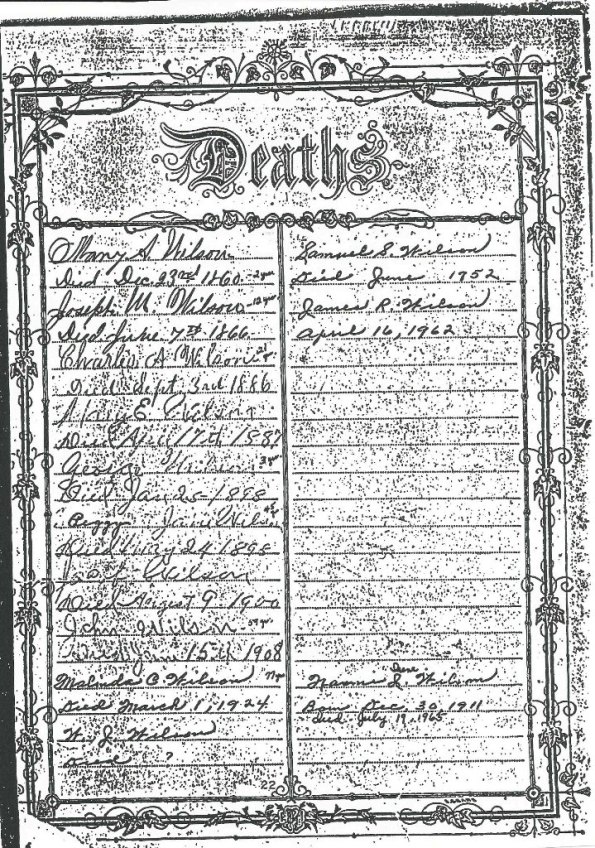 Deaths
Mary A Wilson
Died Dec 23rd 1860
Joseph M. Wilson
Died June 7th 1866
Charles A Wilson
Died Sept, 3rd 1886
Mary E
Died April 17th 1887
George Wilson
Died Jan 25-1898
Peggy Jane Wilson
Died 24 1898
Wilson
Died August 9 1900
John Wilson
Died 15th 1908
Malinda C Wilson
Died March 1, 1924
W. J. Wilson
Died ?
22
Samuel S. Wilson
Died June 1952
James R. Wilson
April 16, 1962
Wilson
Born Dec 30, 1911
Died July 19, 1965